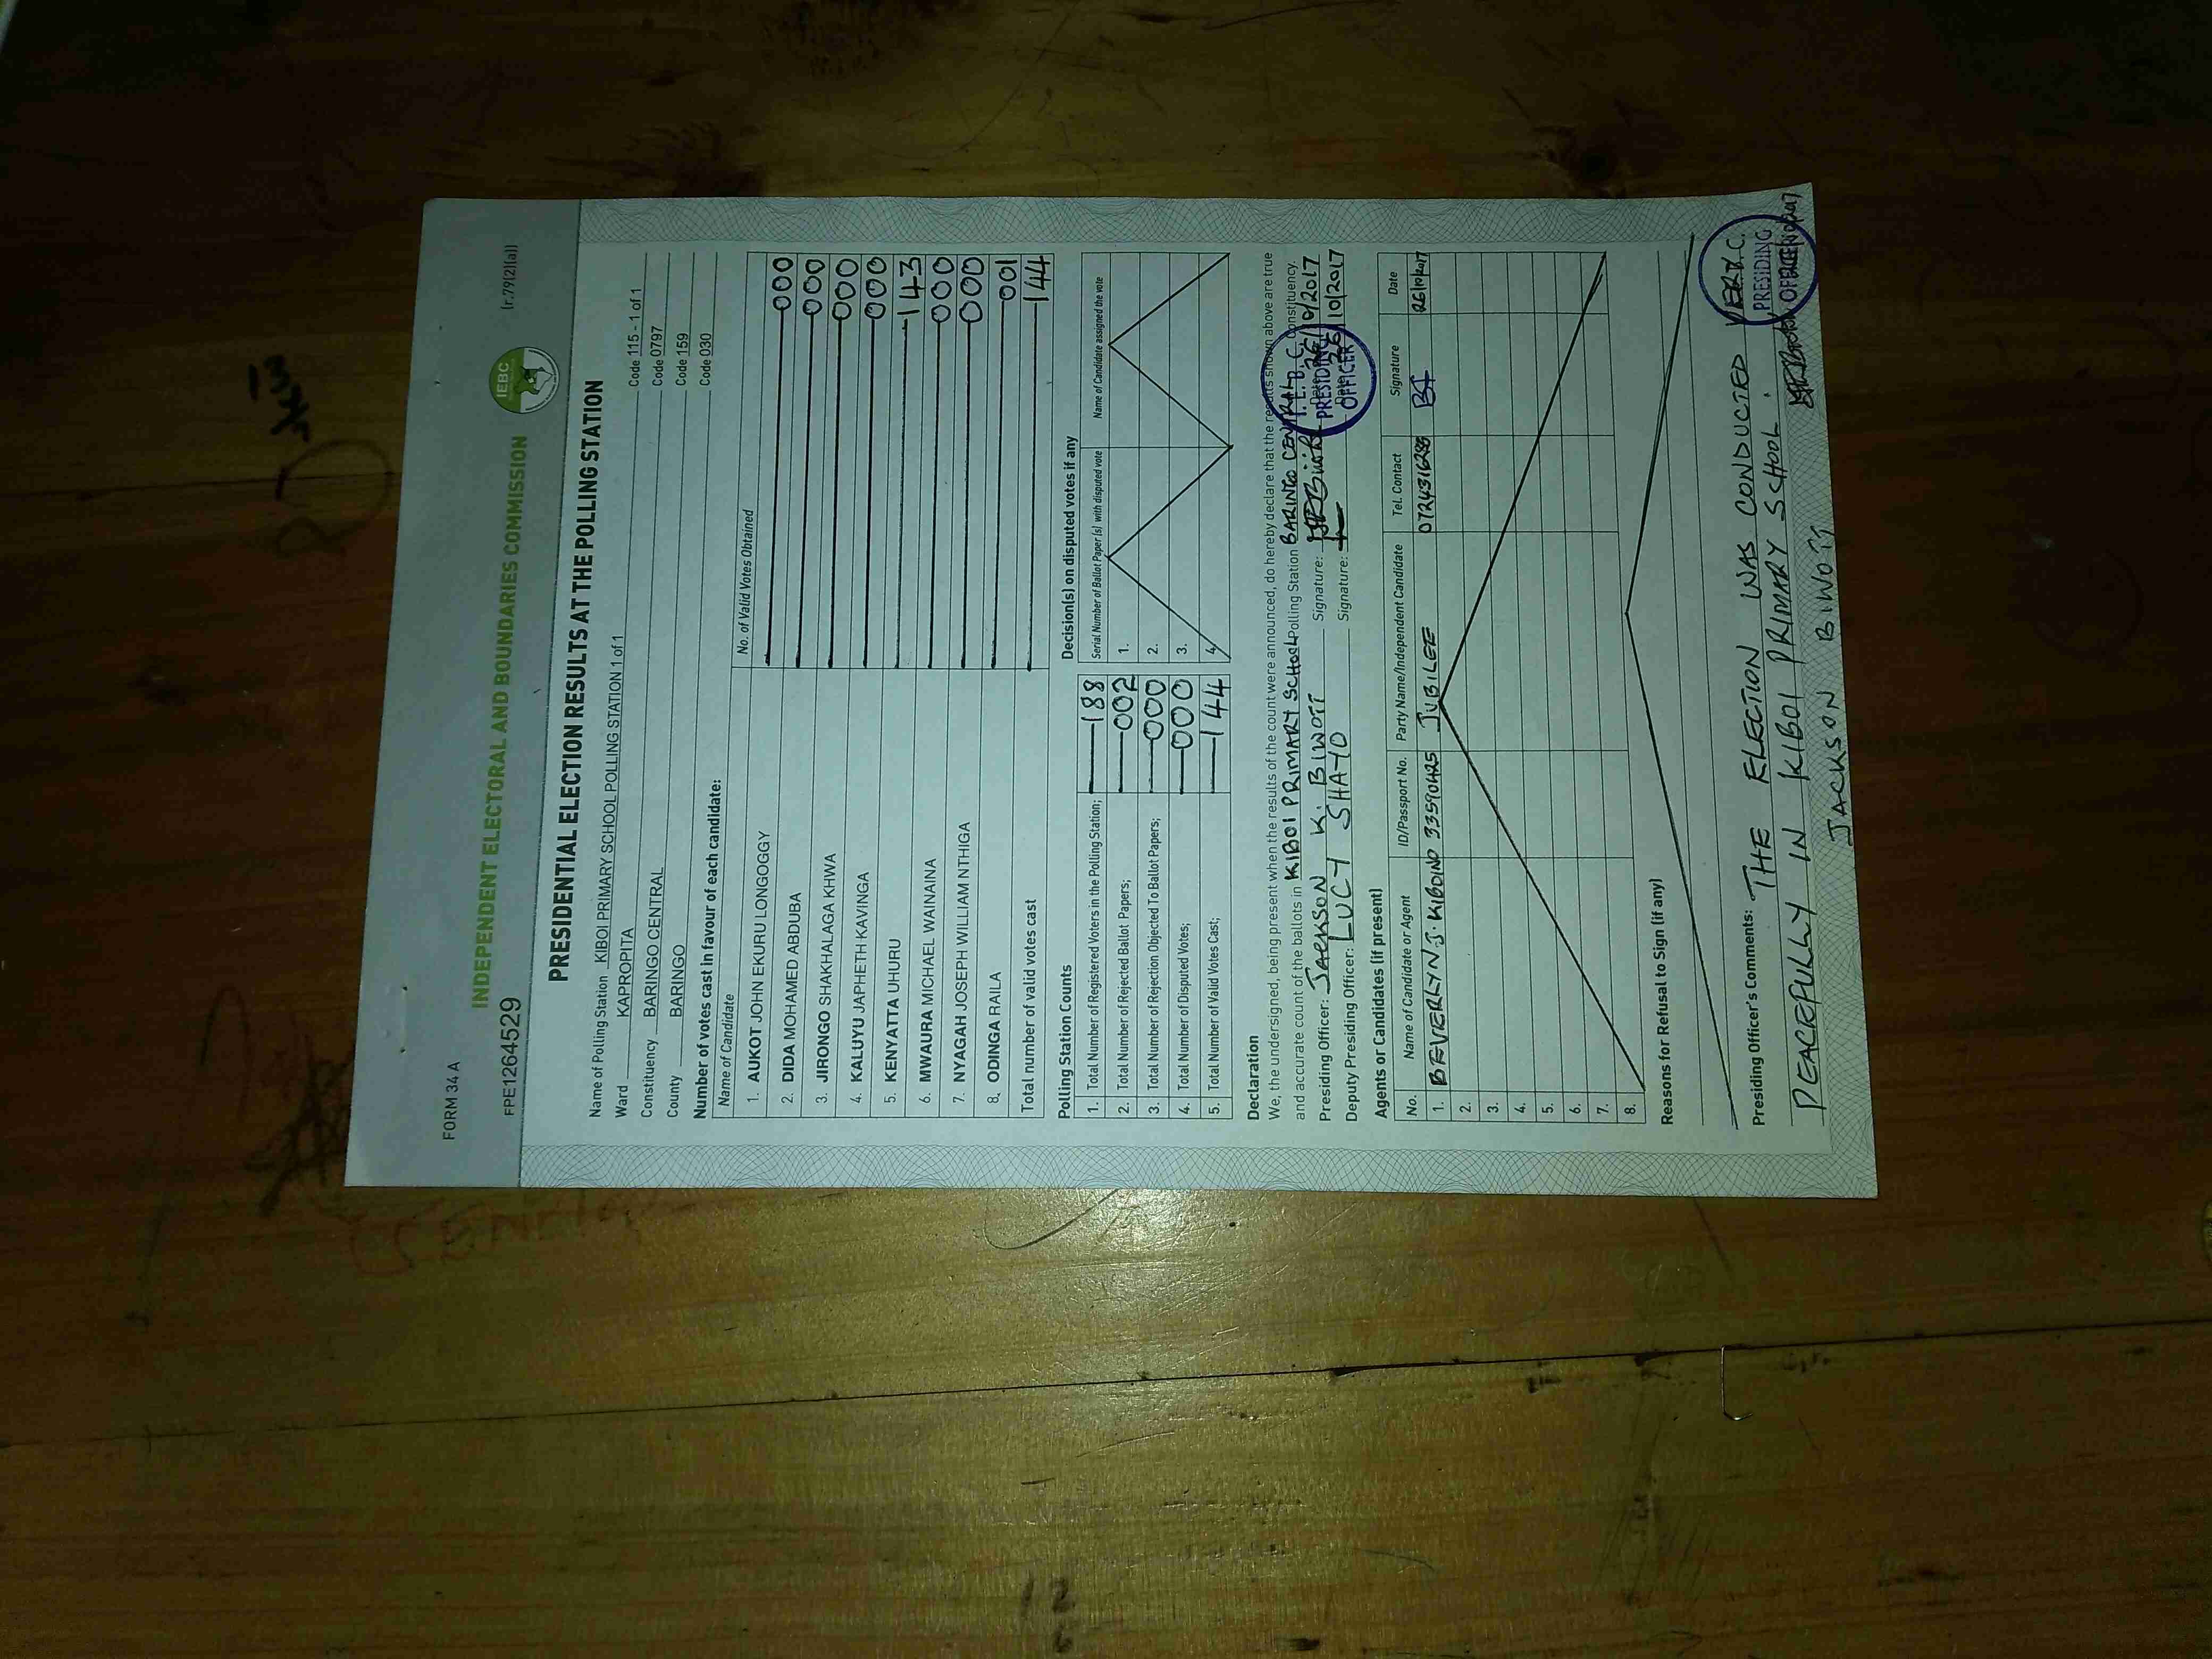 FORM 34 A
(r.79(2)(a))
IEBC
INDEPENDENT ELECTORAL AND BOUNDARIES COMMISSION
FPE1264529
PRESIDENTIAL ELECTION RESULTS AT THE POLLING STATION
Name of Polling Station KIBOI PRIMARY SCHOOL POLLING STATION 1 of 1 Code 115 - 1 of 1
Ward KAPROPITA Code 0797
Constituency BARINGO CENTRAL Code 159
County BARINGO Code 030
Number of votes cast in favour of each candidate:
Name of Candidate No. of Valid Votes Obtained
1. AUKOT JOHN EKURU LONGOGGY 000
2. DIDA MOHAMED ABDUBA 000
3. JIRONGO SHAKHALAGA KHWA 000
4. KALUYU JAPHETH KAVINGA 000
5. KENYATTA UHURU 143
6. MWAURA MICHAEL WAINAINA 000
7. NYAGAH JOSEPH WILLIAM NTHIGA 000
8. ODINGA RAILA 001
Total number of valid votes cast 144
Polling Station Counts
1. Total Number of Registered Voters in the Polling Station; 188
2. Total Number of Rejected Ballot Papers; 002
3. Total Number of Rejection Objected To Ballot Papers; 000
4. Total Number of Disputed Votes; 000
5. Total Number of Valid Votes Cast; 144
Decision(s) on disputed votes if any
Serial Number of Ballot Paper (s) with disputed vote Name of Candidate assigned the vote
1.
2.
3.
4.
Declaration
We, the undersigned, being present when the results of the count were announced, do hereby declare that the results shown above are true
and accurate count of the ballots in KIBOI PRIMARY SCHOOL Polling Station BARINGO CENTRAL Constituency.
Presiding Officer: JACKSON K. BIWOTT Signature: Date: 26/10/2017
Deputy Presiding Officer: LUCY SHAYO Signature: 26/10/2017
I. E. B. C.
PRESIDING
OFFICER
Agents or Candidates (if present)
No. Name of Candidate or Agent ID/Passport No. Party Name/Independent Candidate Tel. Contact Signature Date
1. BEVERLYN J. KIBDINO 33590425 JUBILEE 0724316285 26/10/2017
2.
3.
4.
5.
6.
7.
8.
Reasons for Refusal to Sign (if any)
Presiding Officer's Comments: THE ELECTION WAS CONDUCTED VERY
PEACEFULLY IN KIBOI PRIMARY SCHOOL.
JACKSON BIWOTT
PRESIDING
OFFICER